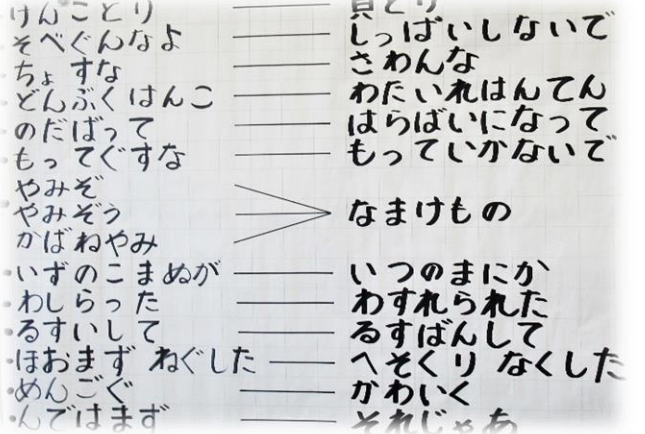 けんことり ― 貝とり
そべぐんなよ ― しっぱいしないで
ちょすな ― さわんな
どんぶくはんこ ― わたいれはんてん
のだばって ― はらばいになって
もってぐすな ― もっていかないで
やみぞ
やみぞう ― なまけもの
かばねやみ
いずのこまぬが ― いつのまにか
わしらった ― わすれられた
るすいして ― るすばんして
ほおまず ねぐした ― へそくり なくした
めんごぐ ― かわいく
んではまず ― それじゃあ